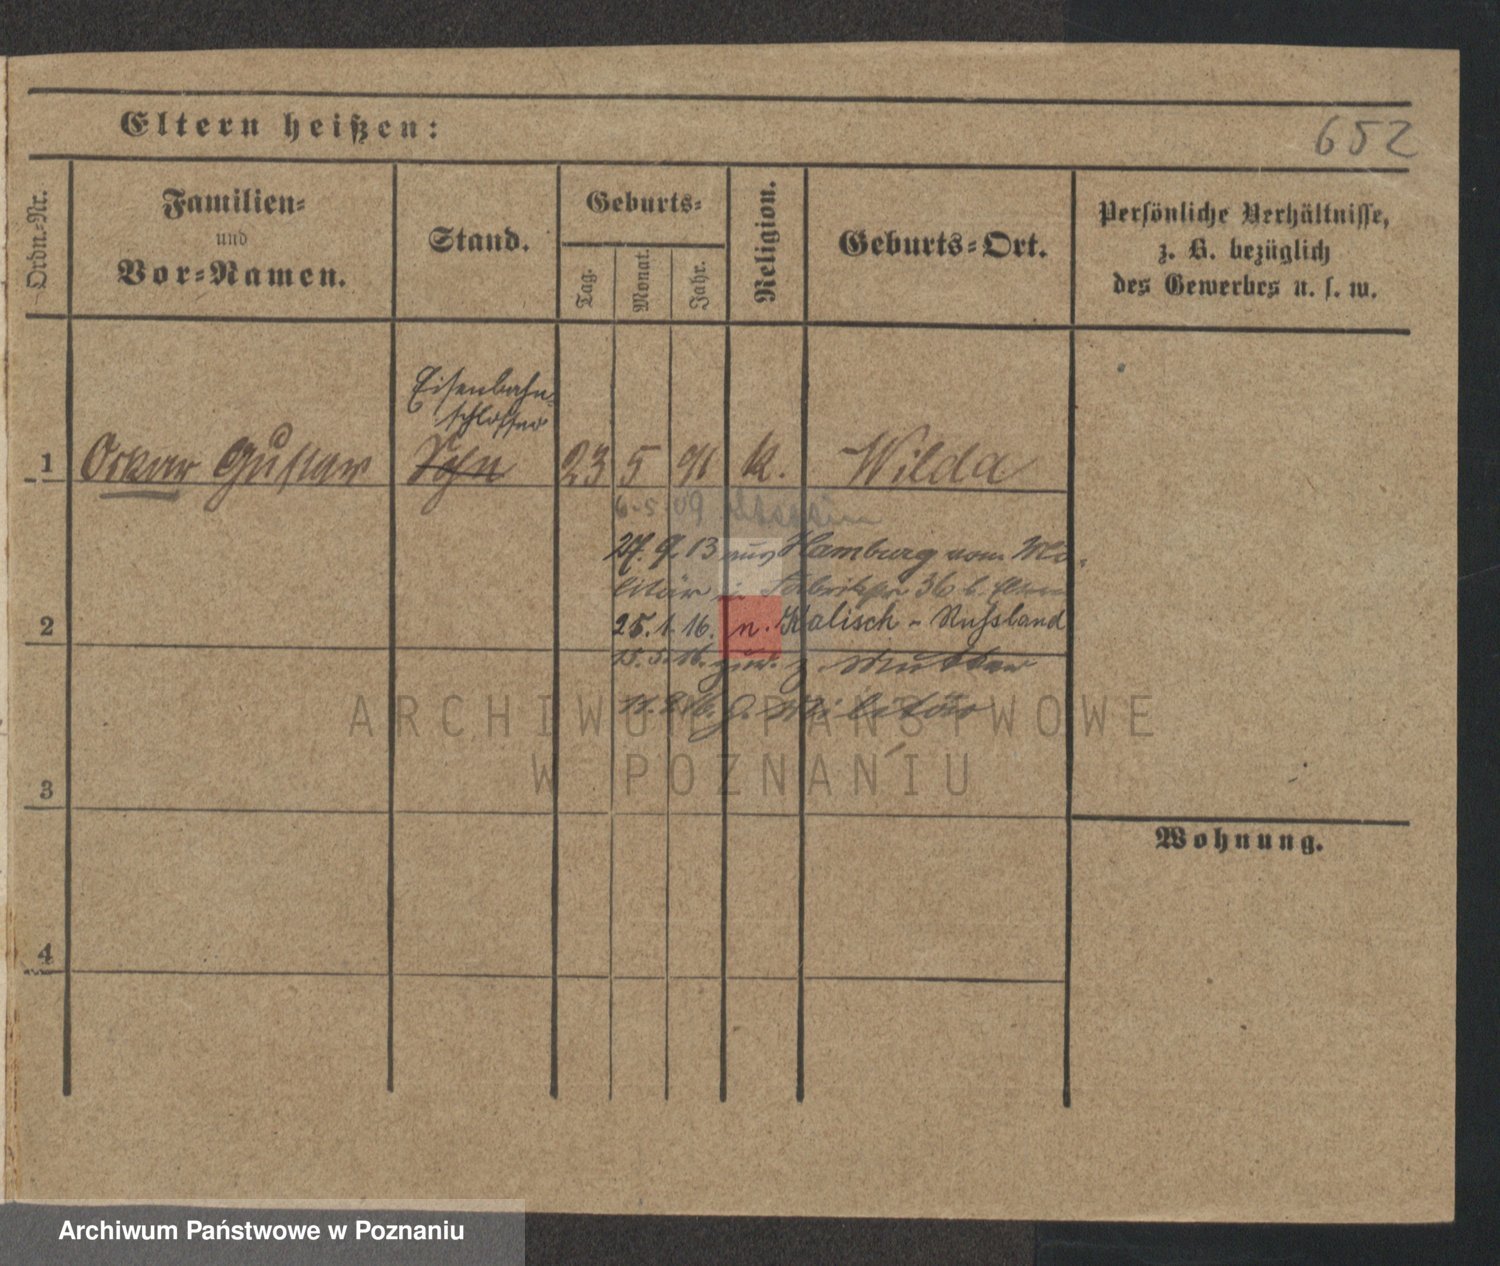 652
Eltern heißen:
Ordn.-Nr.
Familien-
und
Vor-Namen.
Stand.
Geburts-
Tag.
Monat.
Jahr.
Religion.
Geburts-Ort.
Persönliche Verhältnisse,
z. B. bezüglich
des Gewerbes u. s. w.
Eisenbahn-
schlosser
1 Oskar Gustav Sohn 23 5 91 k. Wilda
6.5.09
27. 9. 13 aus Hamburg vom Mi-
litär in Fabrikstr 36 b. Eltern
2 25.1.16. n. Kalisch - Russland
15.5.16. zur. z. Mutter
z. Militär
ARCHIWUM PAŃSTWOWE
W POZNANIU
3
Wohnung.
4
Archiwum Państwowe w Poznaniu